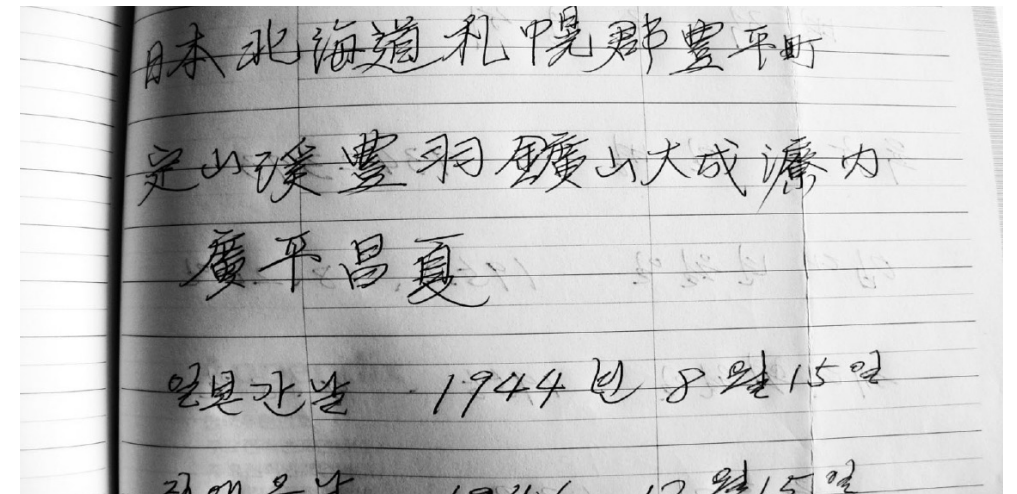 日本北海道札幌郡豐平町
定山溪豐羽鑛山大成寮内
廣平昌夏
일본간날 1944년 8월15일
12월15일